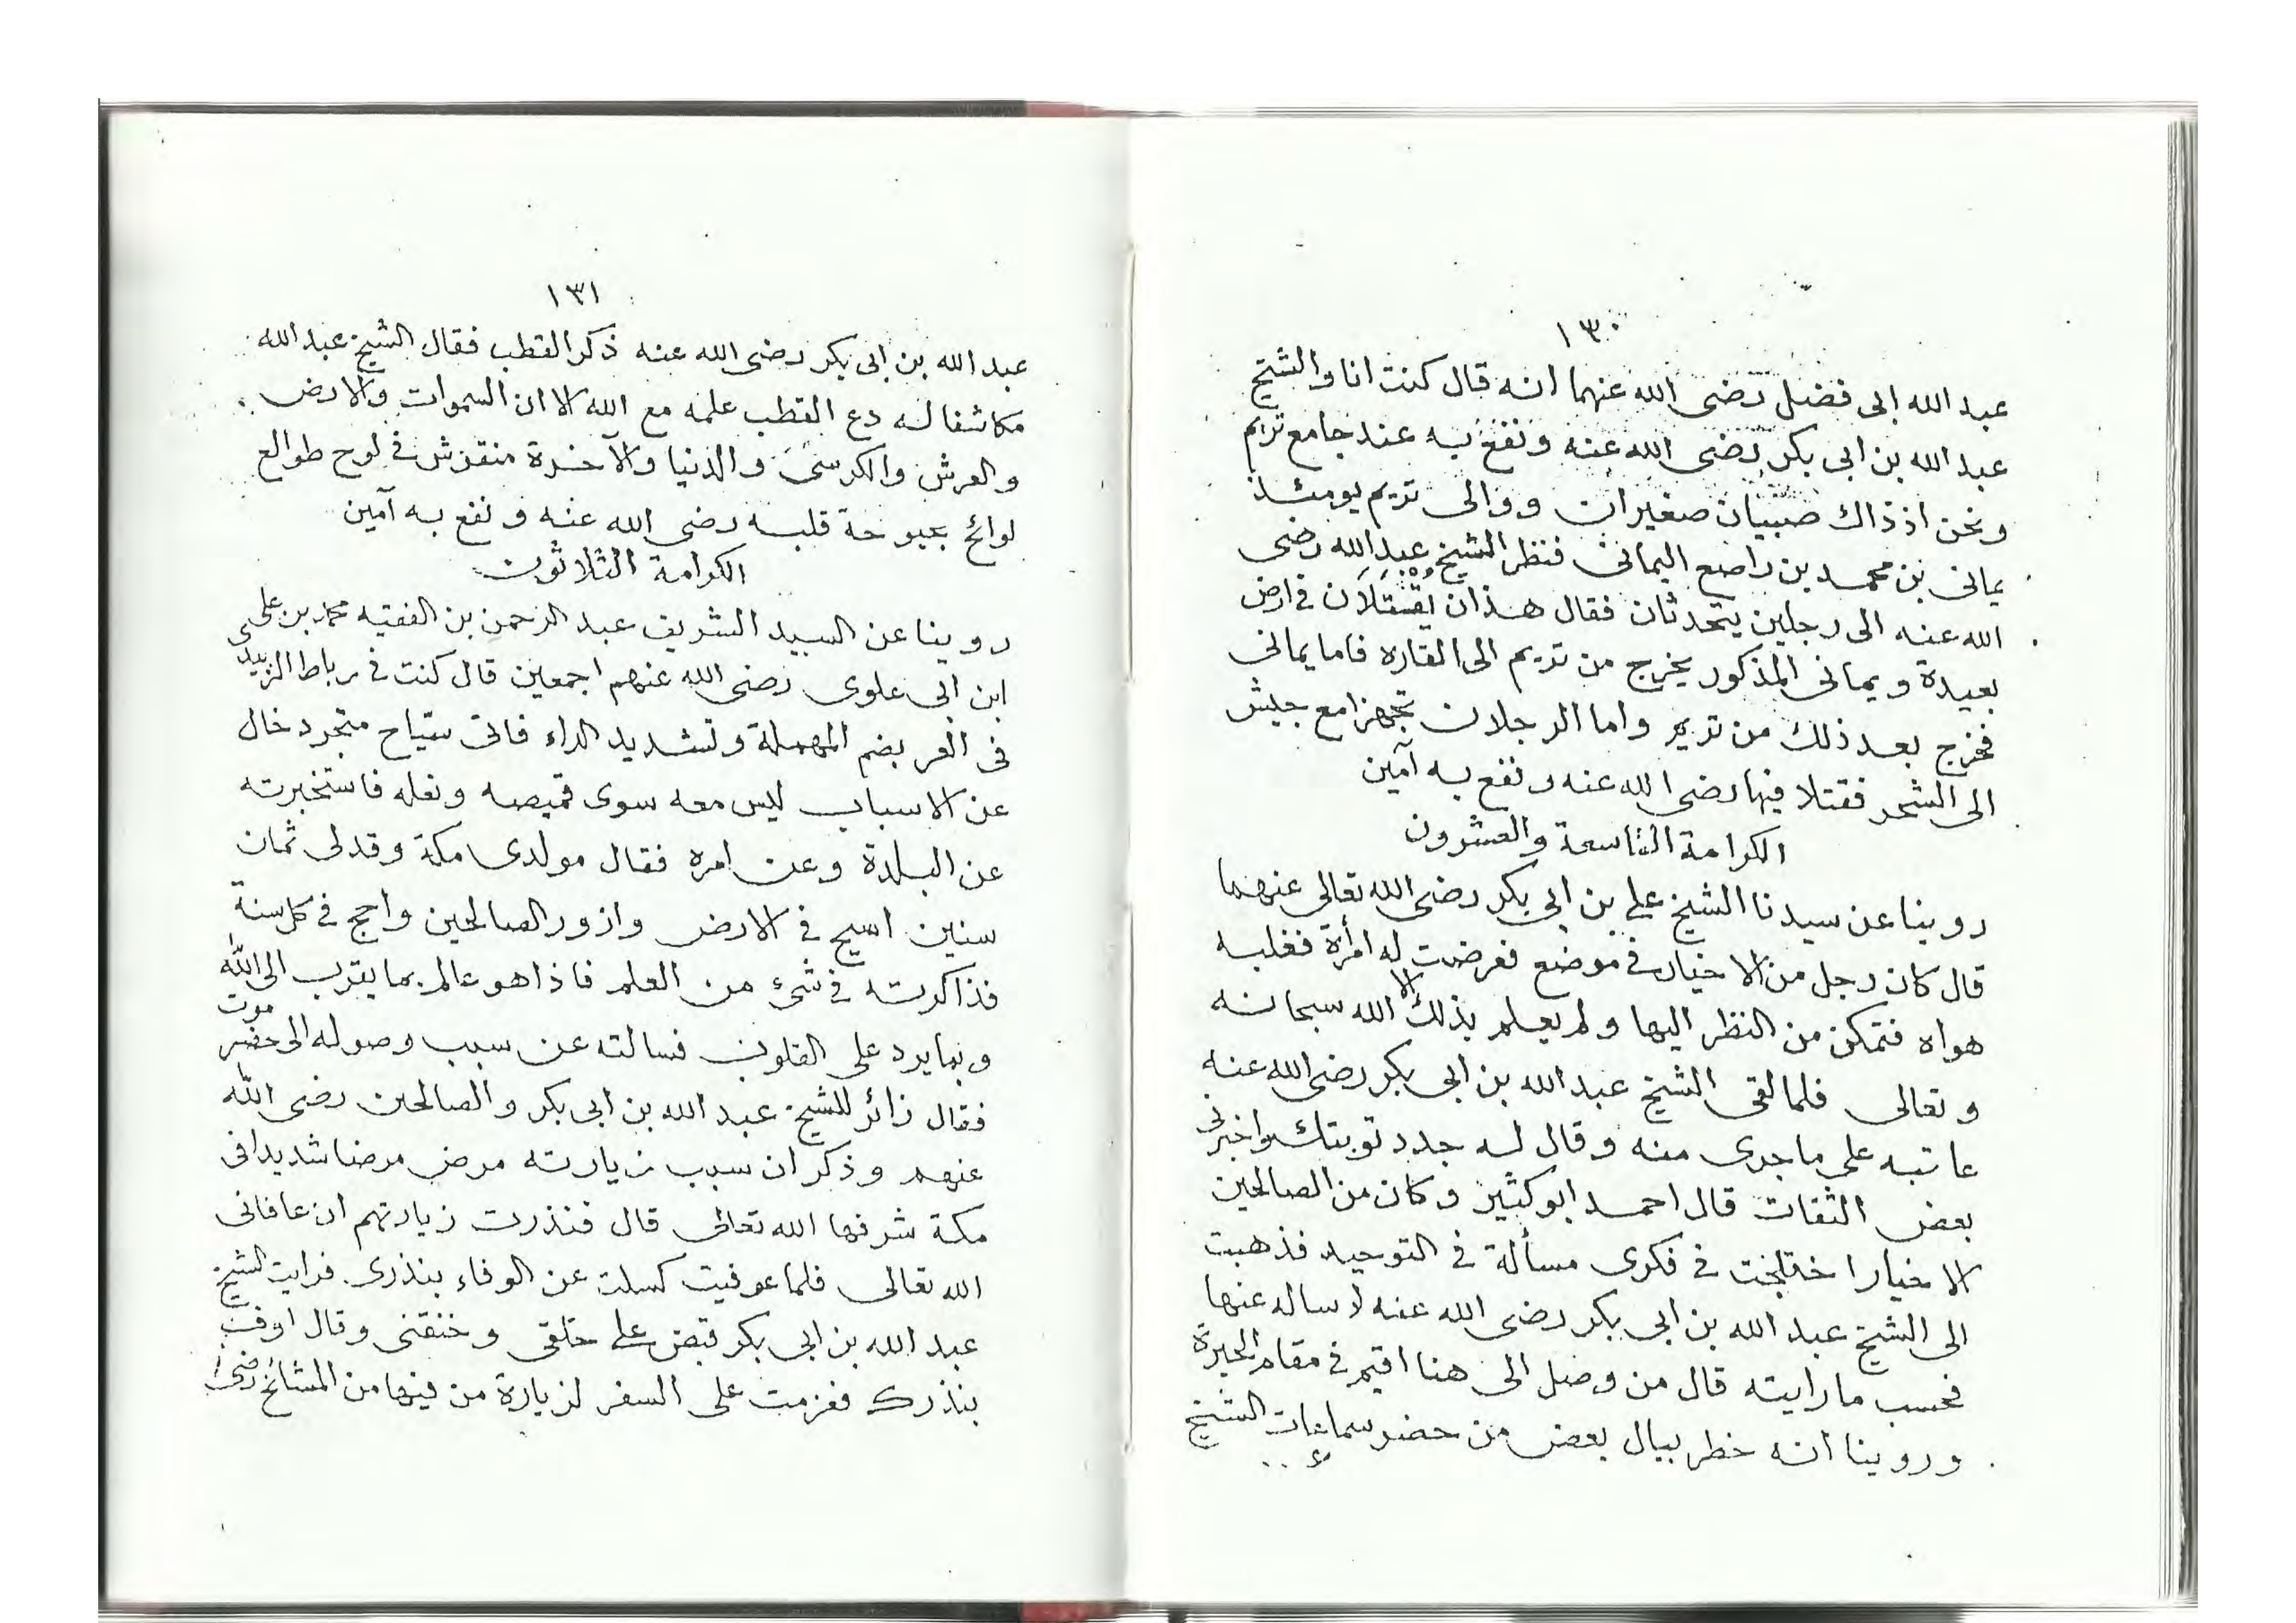 ١٣٠
عبد الله ابى فضل رضى الله عنهما انه قال كنت انا والشيخ
عبد الله بن ابى بكر رضى الله عنه ونفع به عند جامع تريم
ونحن اذ ذاك صبيان صغيران ووالى تريم يومئذ
يمانى بن محمد بن راصع اليمانى فنظر الشيخ عبد الله رضى
الله عنه الى رجلين يتحدثان فقال هذان يقتتلان فى ارض
بعيدة ويمانى المذكور يخرج من تريم الى القاره فاما يمانى
فخرج بعد ذلك من تريم واما الرجلان تجهزا مع جيش
الى الشحر فقتلا فيها رضى الله عنه ونفع به آمين
الكرامة التاسعة والعشرون
روينا عن سيدنا الشيخ على بن ابى بكر رضى الله تعالى عنهما
قال كان رجل من الاخيار فى موضع فعرضت له امرأة فغلبه
هواه فتمكن من النظر اليها ولم يعلم بذلك الا الله سبحانه
وتعالى فلما لقى الشيخ عبد الله بن ابى بكر رضى الله عنه
عاتبه على ما جرى منه وقال له جدد توبتك واخبرنى
بعض الثقات قال احمد ابو كثير وكان من الصالحين
الاخيار اختلجت فى فكرى مسألة فى التوحيد فذهبت
الى الشيخ عبد الله بن ابى بكر رضى الله عنه لاساله عنها
فحسب ما رايته قال من وصل الى هنا اقيم فى مقام الحيرة
وروينا انه خطر ببال بعض من حضر سماعات الشيخ
١٣١
عبد الله بن ابى بكر رضى الله عنه ذكر القطب فقال الشيخ عبد الله
مكاشفا له دع القطب علمه مع الله الا ان السموات والارض
والعرش والكرسى والدنيا والآخرة منقوش فى لوح طوالع
لوائح بحبوحة قلبه رضى الله عنه ونفع به آمين
الكرامة الثلاثون
روينا عن السيد الشريف عبد الرحمن بن الفقيه محمد بن على
ابن ابى علوى رضى الله عنهم اجمعين قال كنت فى رباط الزبيدى
فى العر بضم المهملة وتشديد الراء فاتى سيّاح متجرد خال
عن الاسباب ليس معه سوى قميصه ونعله فاستخبرته
عن البلدة وعن امره فقال مولدى مكة وقد لى ثمان
سنين اسيح فى الارض وازور الصالحين واحج فى كل سنة
فذاكرته فى شىء من العلم فاذا هو عالم بما يقرب الى الله
وبما يرد على القلوب فسالته عن سبب وصوله الى حضرموت
فقال زائر للشيخ عبد الله بن ابى بكر والصالحين رضى الله
عنهم وذكر ان سبب زيارته مرض مرضا شديدا فى
مكة شرفها الله تعالى قال فنذرت زيارتهم ان عافانى
الله تعالى فلما عوفيت كسلت عن الوفاء بنذرى فرايت الشيخ
عبد الله بن ابى بكر قبض على حلقى وخنقنى وقال اوف
بنذرك فعزمت على السفر لزيارة من فيها من المشائخ رضى ا